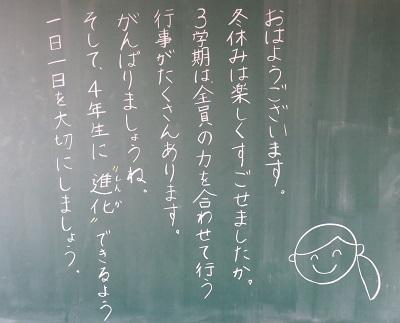 おはようございます。
冬休みは楽しくすごせましたか。
3学期は、全員の力を合わせて行う
行事がたくさんあります。
がんばりましょうね。
そして、4年生に"進化"できるよう
しんか
一日一日を大切にしましょう。